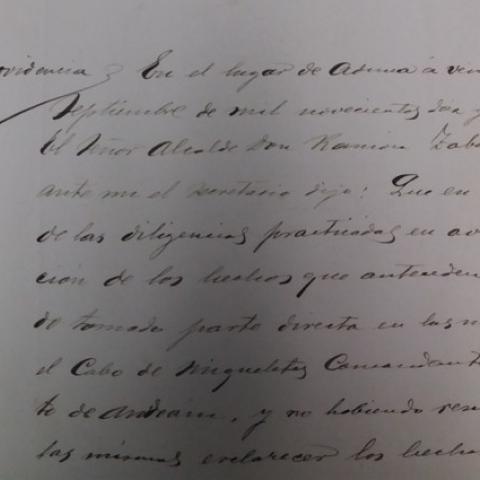 ovidencia En el lugar de Asua á vein
Septiembre de mil novecientos dos y
El Señor Alcalde Don Ramón Zaba
ante mi el secretario dijo: Que en
de las diligencias practicadas en av
cion de los hechos que anteceden
do tomado parte directa en las m
el Cabo de Miqueletes Comandant
to de , y no habiendo resu
las mismas esclarecer los hecho